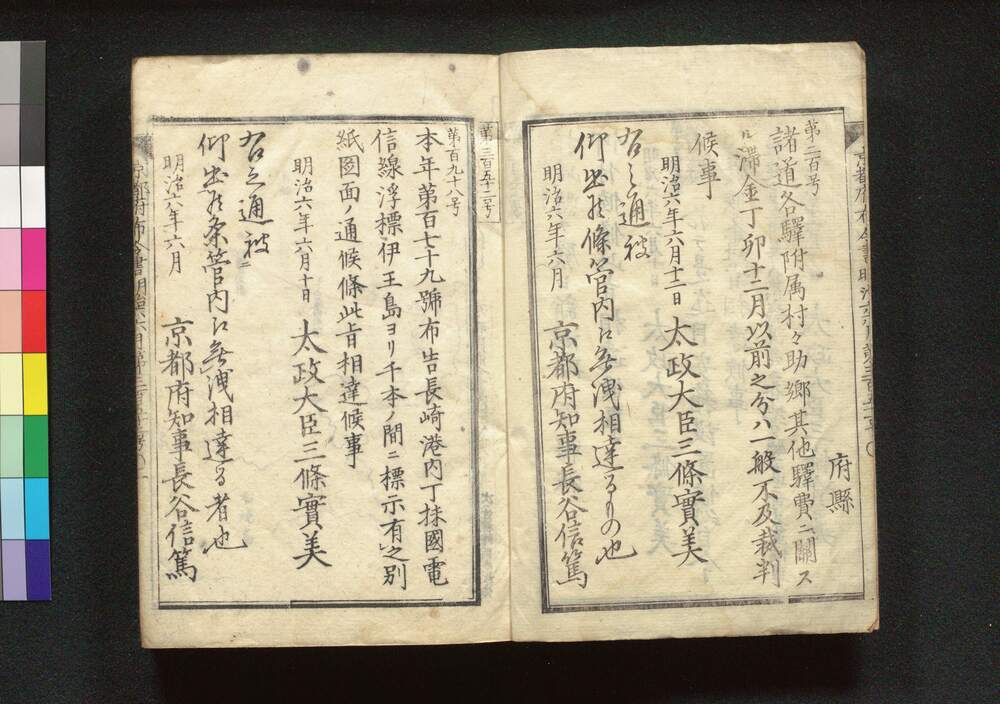 府縣
第二百号
諸道各驛附属村々助郷其他驛費ニ關ス
ル滞金丁卯十二月以前之分ハ一般不及裁判
候事
明治六年六月十二日 太政大臣三條實美
右之通被
仰出候條管内江無洩相達るもの也
明治六年六月 京都府知事長谷信篤
第三百五十二号
第百九十八号
本年第百七十九號布告長崎港内丁抹國電
信線浮標伊王島ヨリ千本ノ間ニ標示有之別
紙図面ノ通候條此旨相達候事
明治六年六月十日 太政大臣三條實美
右之通被
仰出候条管内江無洩相達る者也
明治六年六月 京都府知事長谷信篤